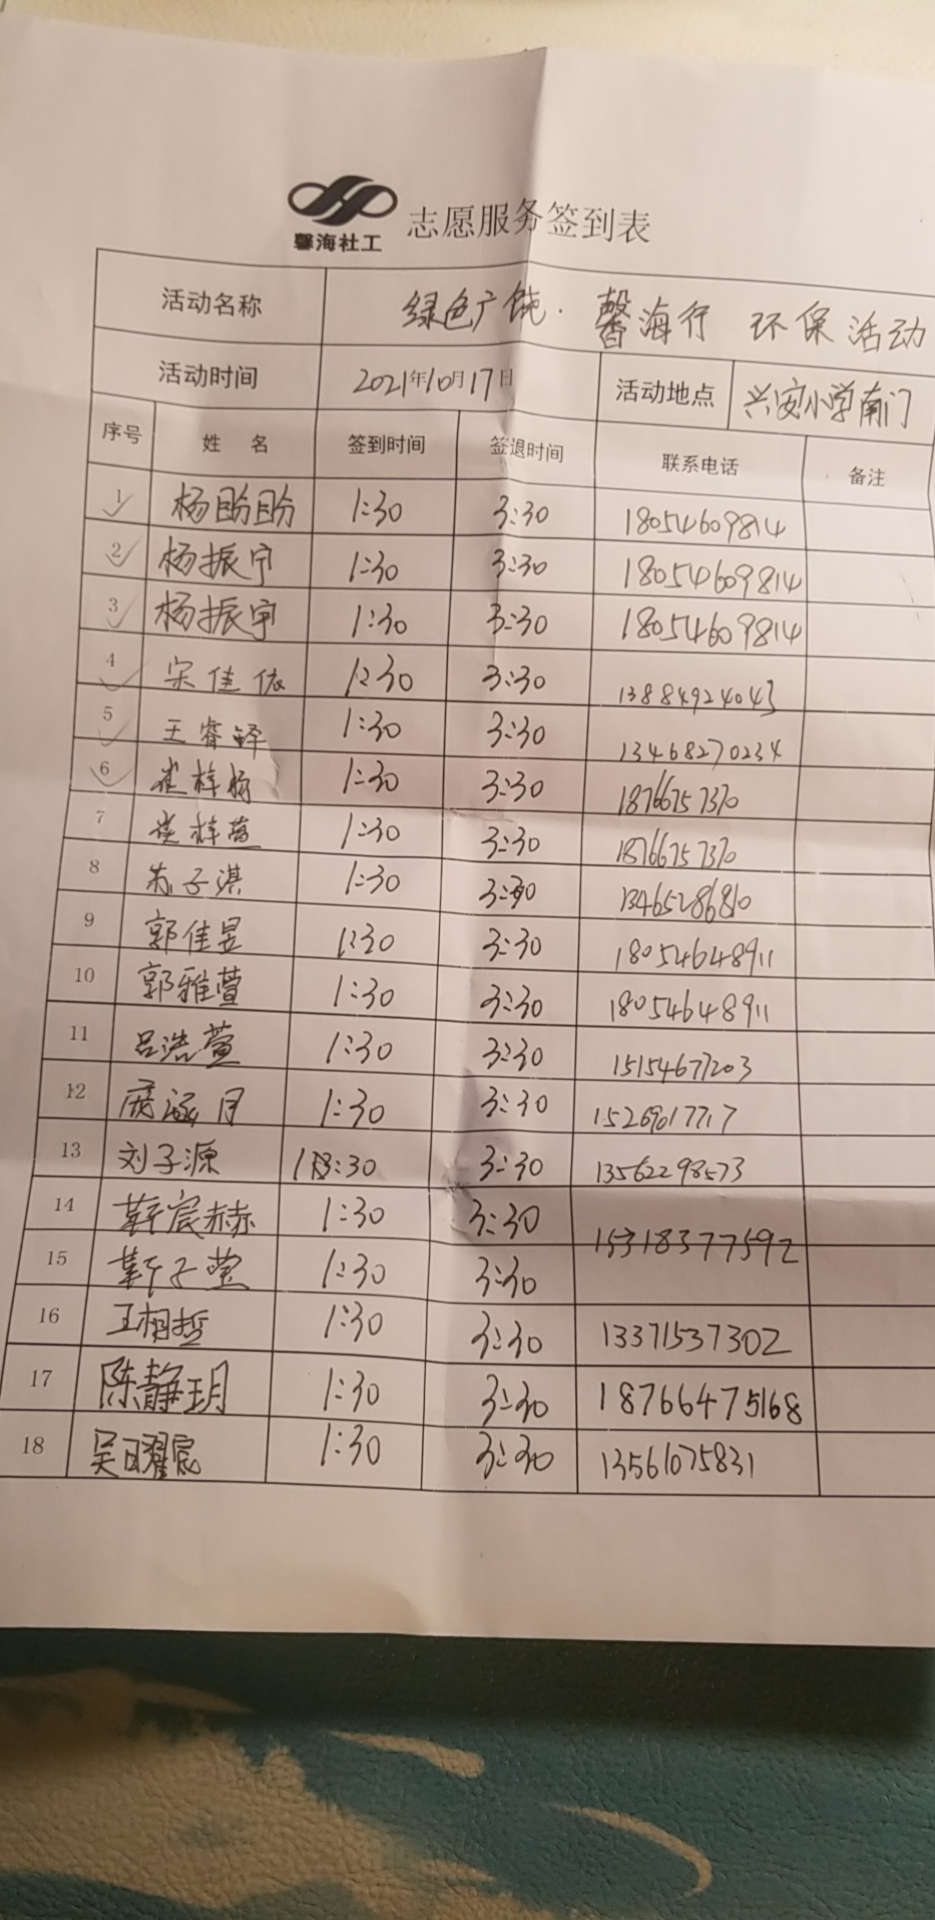 馨海社工 志愿服务签到表
活动名称 绿色广饶·馨海行 环保活动
活动时间 2021年10月17日 活动地点 兴安小学南门
序号 姓 名 签到时间 签退时间 联系电话 备注
1 杨盼盼 1:30 3:30 18054609814
2 杨振宁 1:30 3:30 18054609814
3 杨振宇 1:30 3:30 18054609814
4 宋佳依 1:30 3:30 13884924043
5 王睿铎 1:30 3:30 13468270234
6 崔梓杨 1:30 3:30 18766757370
7 崔梓萱 1:30 3:30 18766757370
8 子淇 1:30 3:30 13465286810
9 郭佳昱 1:30 3:30 18054648911
10 郭雅萱 1:30 3:30 18054648911
11 吕浩萱 1:30 3:30 15154677203
12 月 1:30 3:30 15269017717
13 刘子源 1:30 3:30 13562298573
14 靳宸赫 1:30 3:30 15318377592
15 靳子莹 1:30 3:30
16 王相哲 1:30 3:30 13371537302
17 陈静玥 1:30 3:30 18766475168
18 吴曜宸 1:30 3:30 13561075831